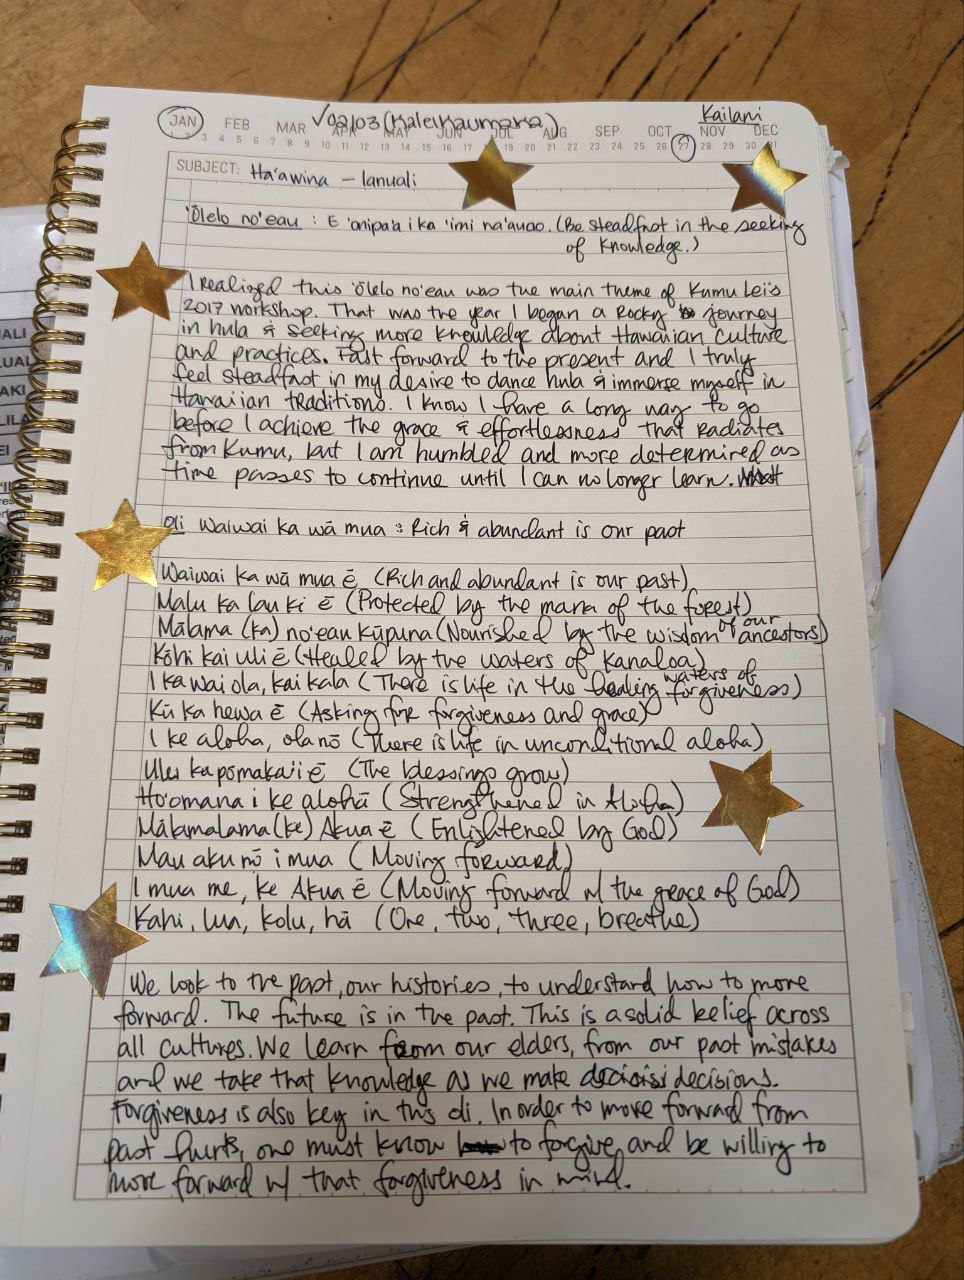 JAN FEB MAR APR MAY JUN JUL AUG SEP OCT NOV DEC
√02/03 (Kaleikaumaka)
Kailani
1 2 3 4 5 6 7 8 9 10 11 12 13 14 15 16 17 18 19 20 21 22 23 24 25 26 27 28 29 30 31
SUBJECT: Ha'awina – Ianuali
'Ōlelo no'eau : E 'onipa'a i ka 'imi na'auao. (Be steadfast in the seeking
of knowledge.)
I realized this 'ōlelo no'eau was the main theme of Kumu Lei's
2017 workshop. That was the year I began a rocky journey
in hula & seeking more knowledge about Hawaiian culture
and practices. Fast forward to the present and I truly
feel steadfast in my desire to dance hula & immerse myself in
Hawaiian traditions. I know I have a long way to go
before I achieve the grace & effortlessness that radiates
from Kumu, but I am humbled and more determined as
time passes to continue until I can no longer learn.
Oli Waiwai ka wā mua : Rich & abundant is our past
Waiwai ka wā mua ē (Rich and abundant is our past)
Malu ka lau ki ē (Protected by the mana of the forest)
Mālama (ka) no'eau kūpuna (Nourished by the wisdom of our ancestors)
Kōhi kai uli ē (Healed by the waters of Kanaloa)
I ka wai ola, kai kala (There is life in the healing waters of forgiveness)
Kū ka hewa ē (Asking for forgiveness and grace)
I ke aloha, ola nō (There is life in unconditional aloha)
Ulu ka pōmaka'i ē (The blessings grow)
Ho'omana i ke alohā (Strengthened in Aloha)
Mālamalama (ke) Akua ē (Enlightened by God)
Mau aku nō i mua (Moving forward)
I mua me, ke Akua ē (Moving forward w/ the grace of God)
Kahi, lua, kolu, hā (One, two, three, breathe)
We look to the past, our histories, to understand how to move
forward. The future is in the past. This is a solid belief across
all cultures. We learn from our elders, from our past mistakes
and we take that knowledge as we make decisions.
Forgiveness is also key in this oli. In order to move forward from
past hurts, one must know to forgive and be willing to
move forward w/ that forgiveness in mind.